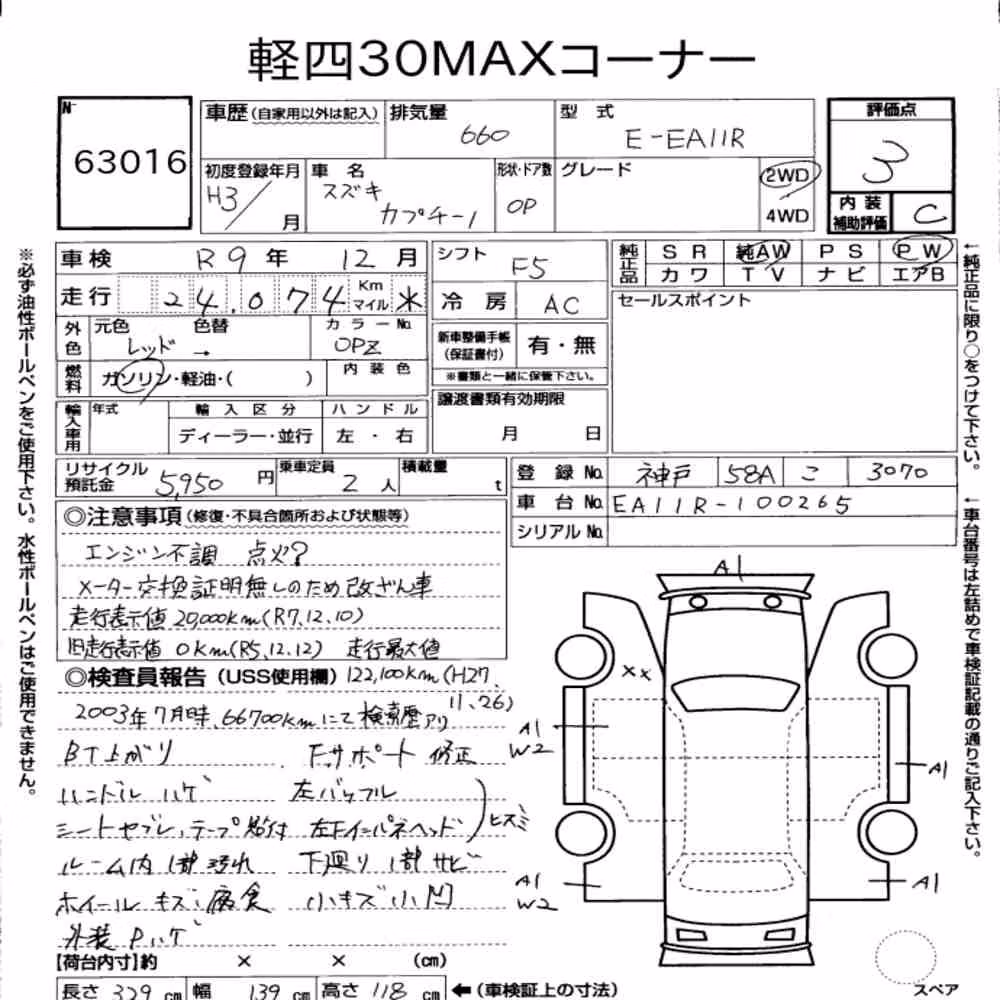 軽四30MAXコーナー
N-
63016
車歴(自家用以外は記入)
排気量
660
型 式
E-EA11R
評価点
3
初度登録年月
H3/ 月
車 名
スズキ
カプチーノ
形状・ドア数
OP
グレード
2WD
4WD
内 装
補助評価
C
車検 R9年 12月
シフト F5
純正品
SR 純AW PS PW
カワ TV ナビ エアB
走行 24,074 Km マイル ※
冷房 AC
セールスポイント
外色
元色 色替
レッド →
カラーNo.
OPZ
新車整備手帳
(保証書付)
有・無
※書類と一緒に保管下さい。
燃料
ガソリン・軽油・( )
内装色
譲渡書類有効期限
月 日
輸入車用
年式
輸入区分
ディーラー・並行
ハンドル
左・右
リサイクル
預託金
5,950 円
乗車定員
2 人
積載量
t
登録No. 神戸 58A こ 3070
車台No. EA11R-100265
シリアルNo.
◎注意事項(修復・不具合箇所および状態等)
エンジン不調 点火?
メーター交換証明無しのため改ざん車
走行表示値 20,000km(R7.12.10)
旧走行表示値 0km(R5.12.12) 走行最大値
◎検査員報告(USS使用欄) 122,100km(H27.
11.26)
2003年7月時、66700kmにて検索歴アリ
BT上がり Fサポート 修正
ハンドル ハゲ 左バッフル
シートヤブレ、テープ貼付 左下インパネヘッド ヒズミ
ルーム内 1部汚れ 下廻り 1部サビ
ホイール キズ、腐食 小キズ小凹
外装 Pハゲ
【荷台内寸】約 × × (cm)
長さ 329 cm 幅 139 cm 高さ 118 cm ←(車検証上の寸法)
A1
××
A1
W2
A1
A1
W2
A1
スペア
※必ず油性ボールペンをご使用下さい。水性ボールペンはご使用できません。
←純正品に限り○をつけて下さい。
←車台番号は左詰めで車検証記載の通りご記入下さい。